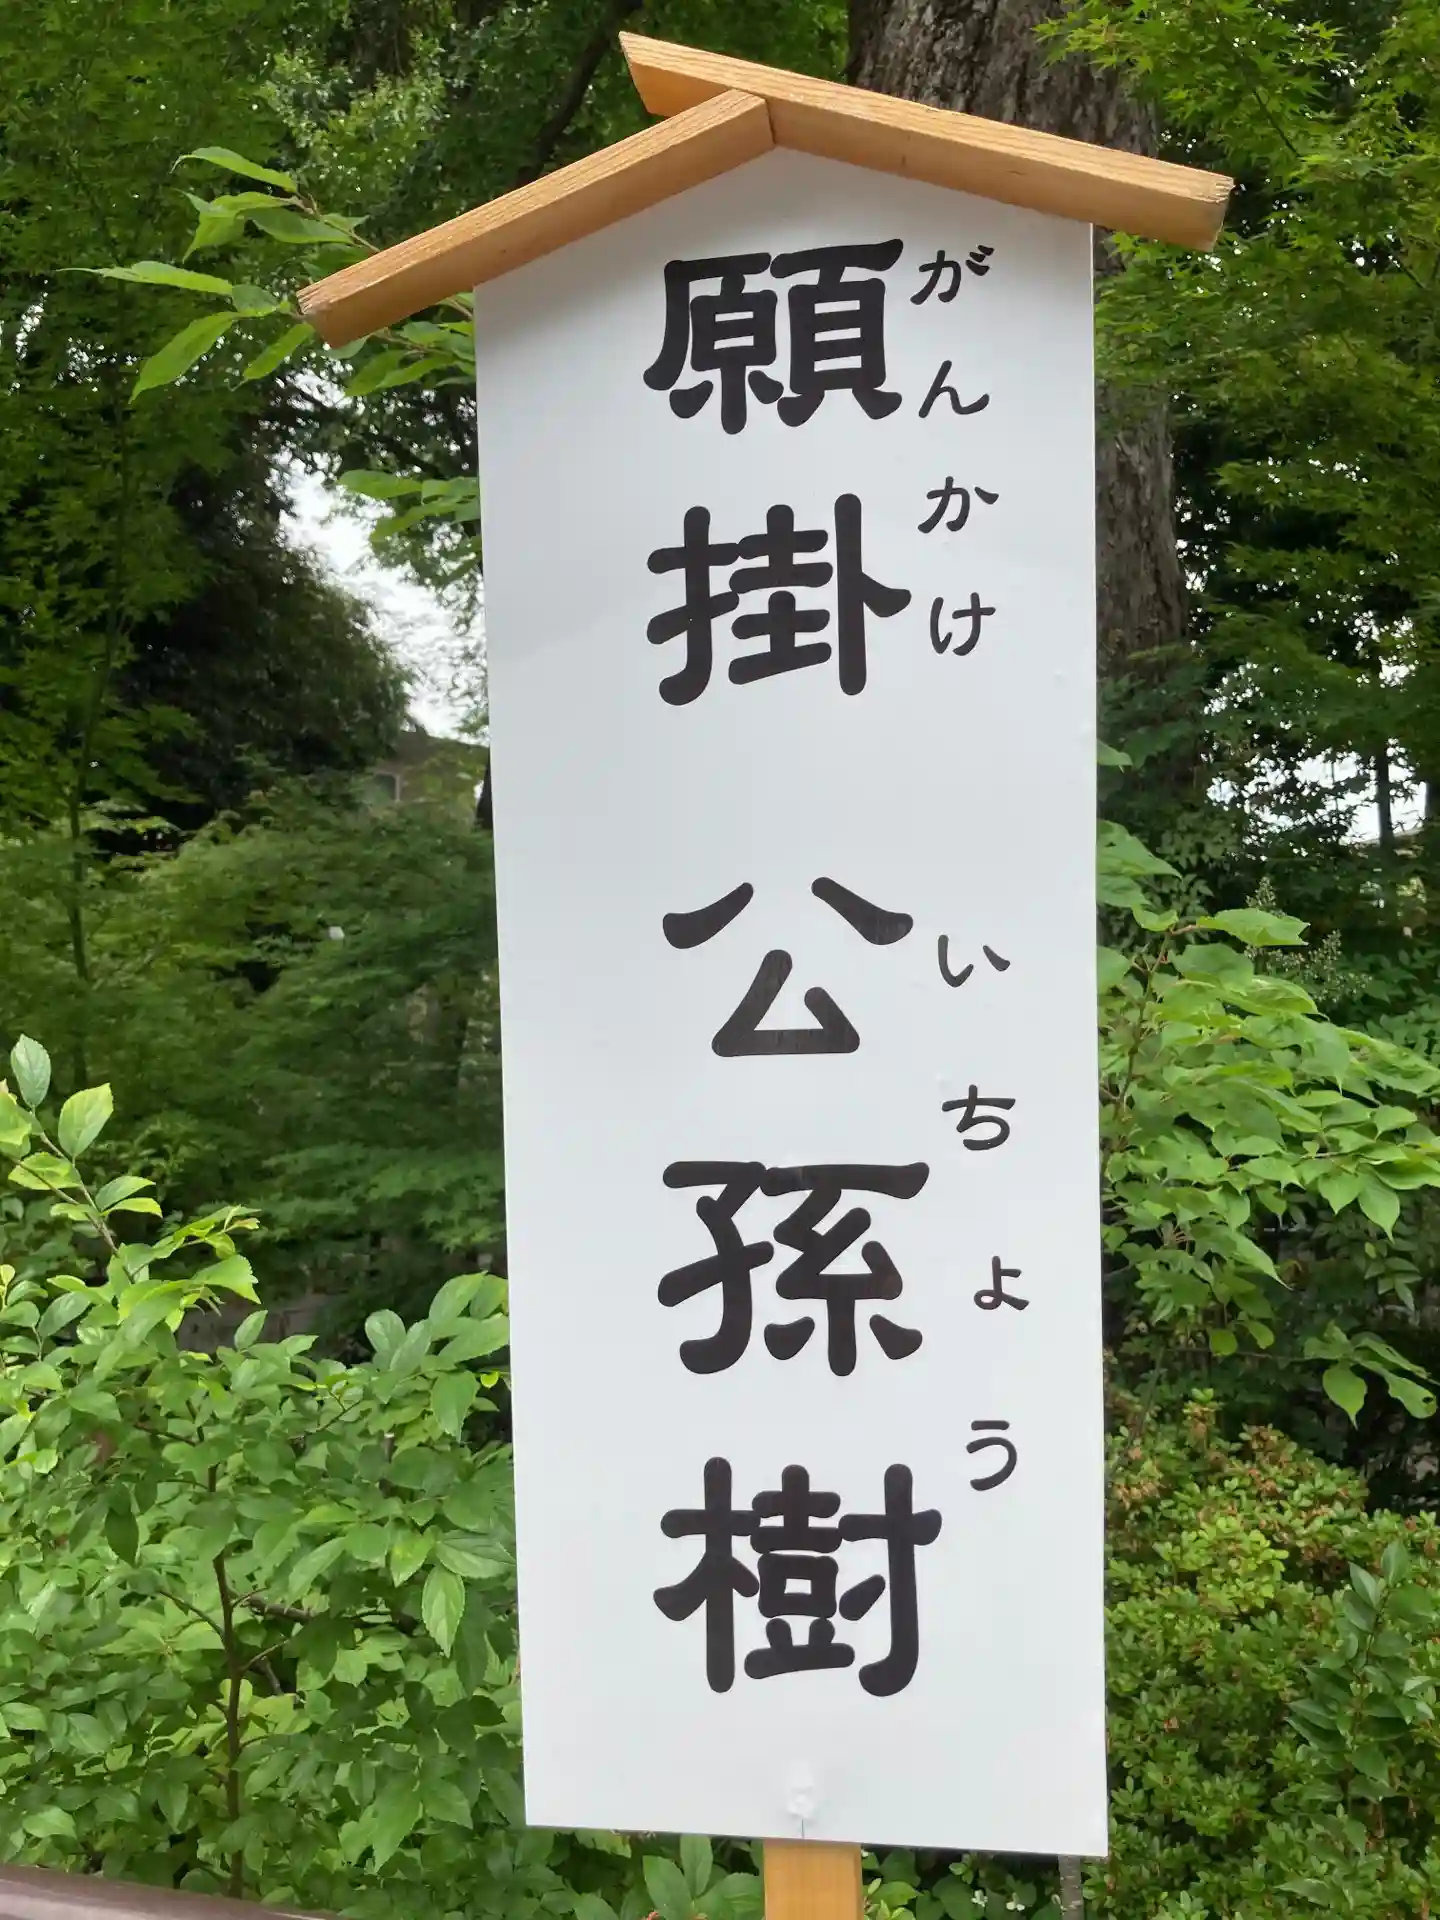 願掛 公孫樹
がんかけ いちょう